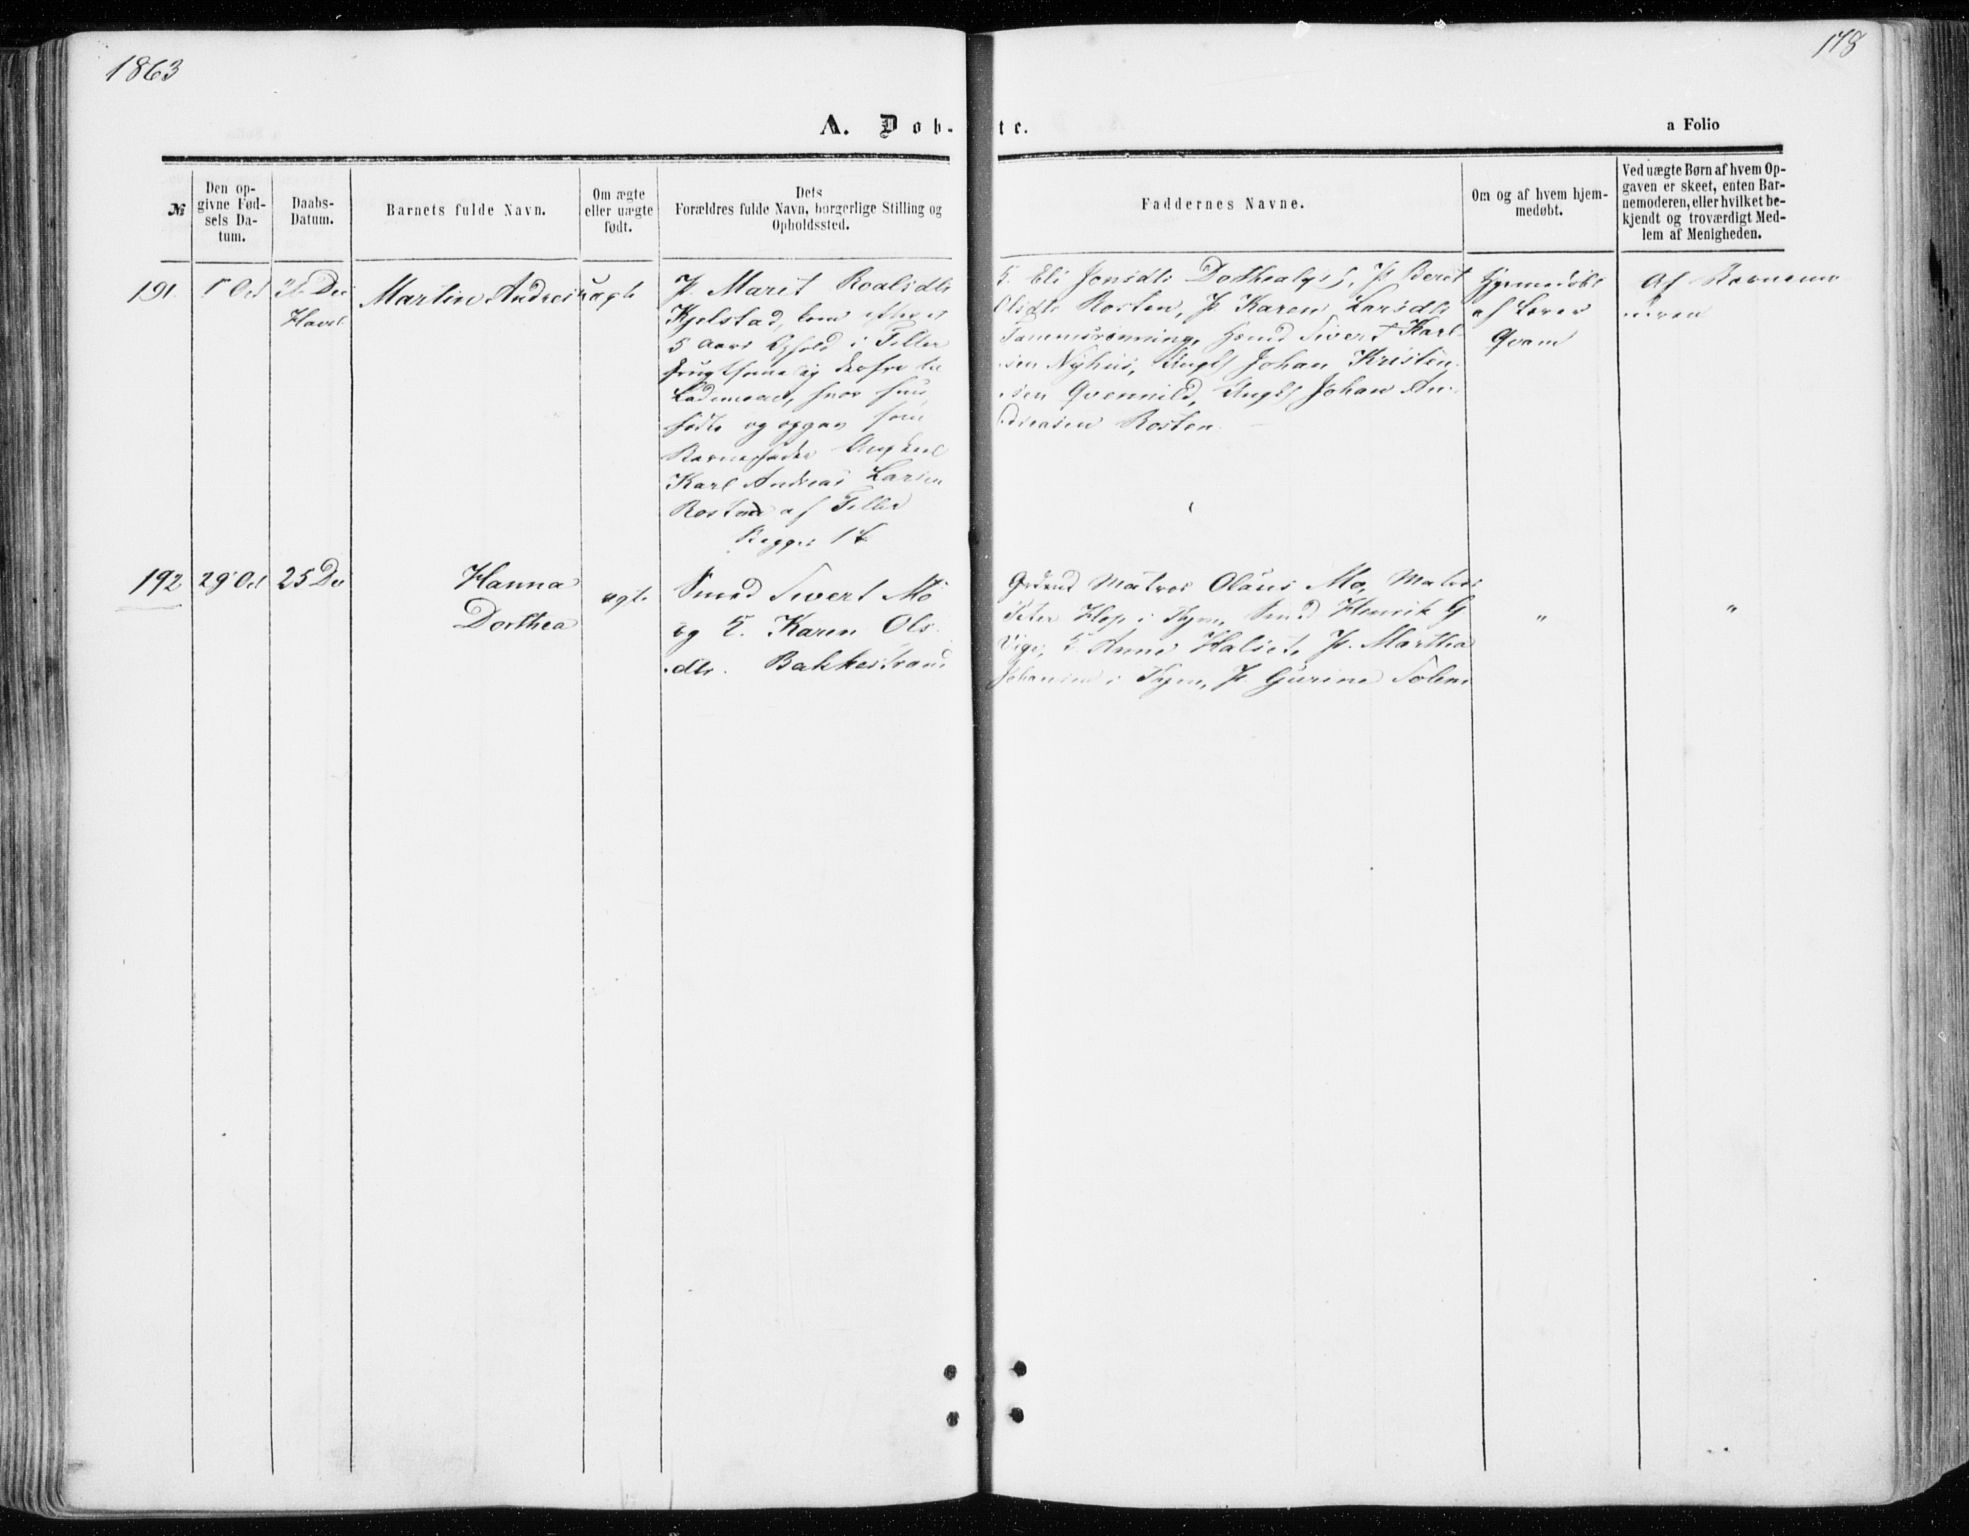 1863
178
A. Døb-
te.
a Folio
№
Den op-
givne Fød-
sels Da-
tum.
Daabs-
Datum.
Barnets fulde Navn.
Om ægte
eller uægte
født.
Dets
Forældres fulde Navn, borgerlige Stilling og
Opholdssted.
Faddernes Navne.
Om og af hvem hjem-
medøbt.
Ved uægte Børn af hvem Op-
gaven er skeet, enten Bar-
nemoderen, eller hvilket be-
kjendt og troværdigt Med-
lem af Menigheden.
191
Oct
Dec
Martin Andreas
uægte
P. Maret Roalsdtr
Kjelstad, som efter et
5 Aars Ophold i Tiller
frugtsom
hvor hun
fødte og opgav som
Barnefader Ungkarl
Karl Andreas Larsen
Rosten af Tiller
Begges 1ste
Eli Jonsdtr Dorthealyst, P. Beret
Olsdtr Rosten, P. Karen Larsdtr
Sivert Karl-
sen Nyhus, Ungk Johan Kristen-
sen Qvenild, Ungk Johan An-
dreasen Rosten
Hjemmedøbt
af Lærer
Qvam
Af Barnemo
deren
192
29 Oct
25 De
Hanna
Dorthea
ægte
Smed Sivert Mo
og K. Karen Ols-
dtr. Bakkestrand
Matros Olaus Mo, Matros
Peter Hop i Thjem, Smed Henrik G
Vige, K. Anne Halset, P. Marthea
Johansen i Thjem, P. Gurine Solem
"
"